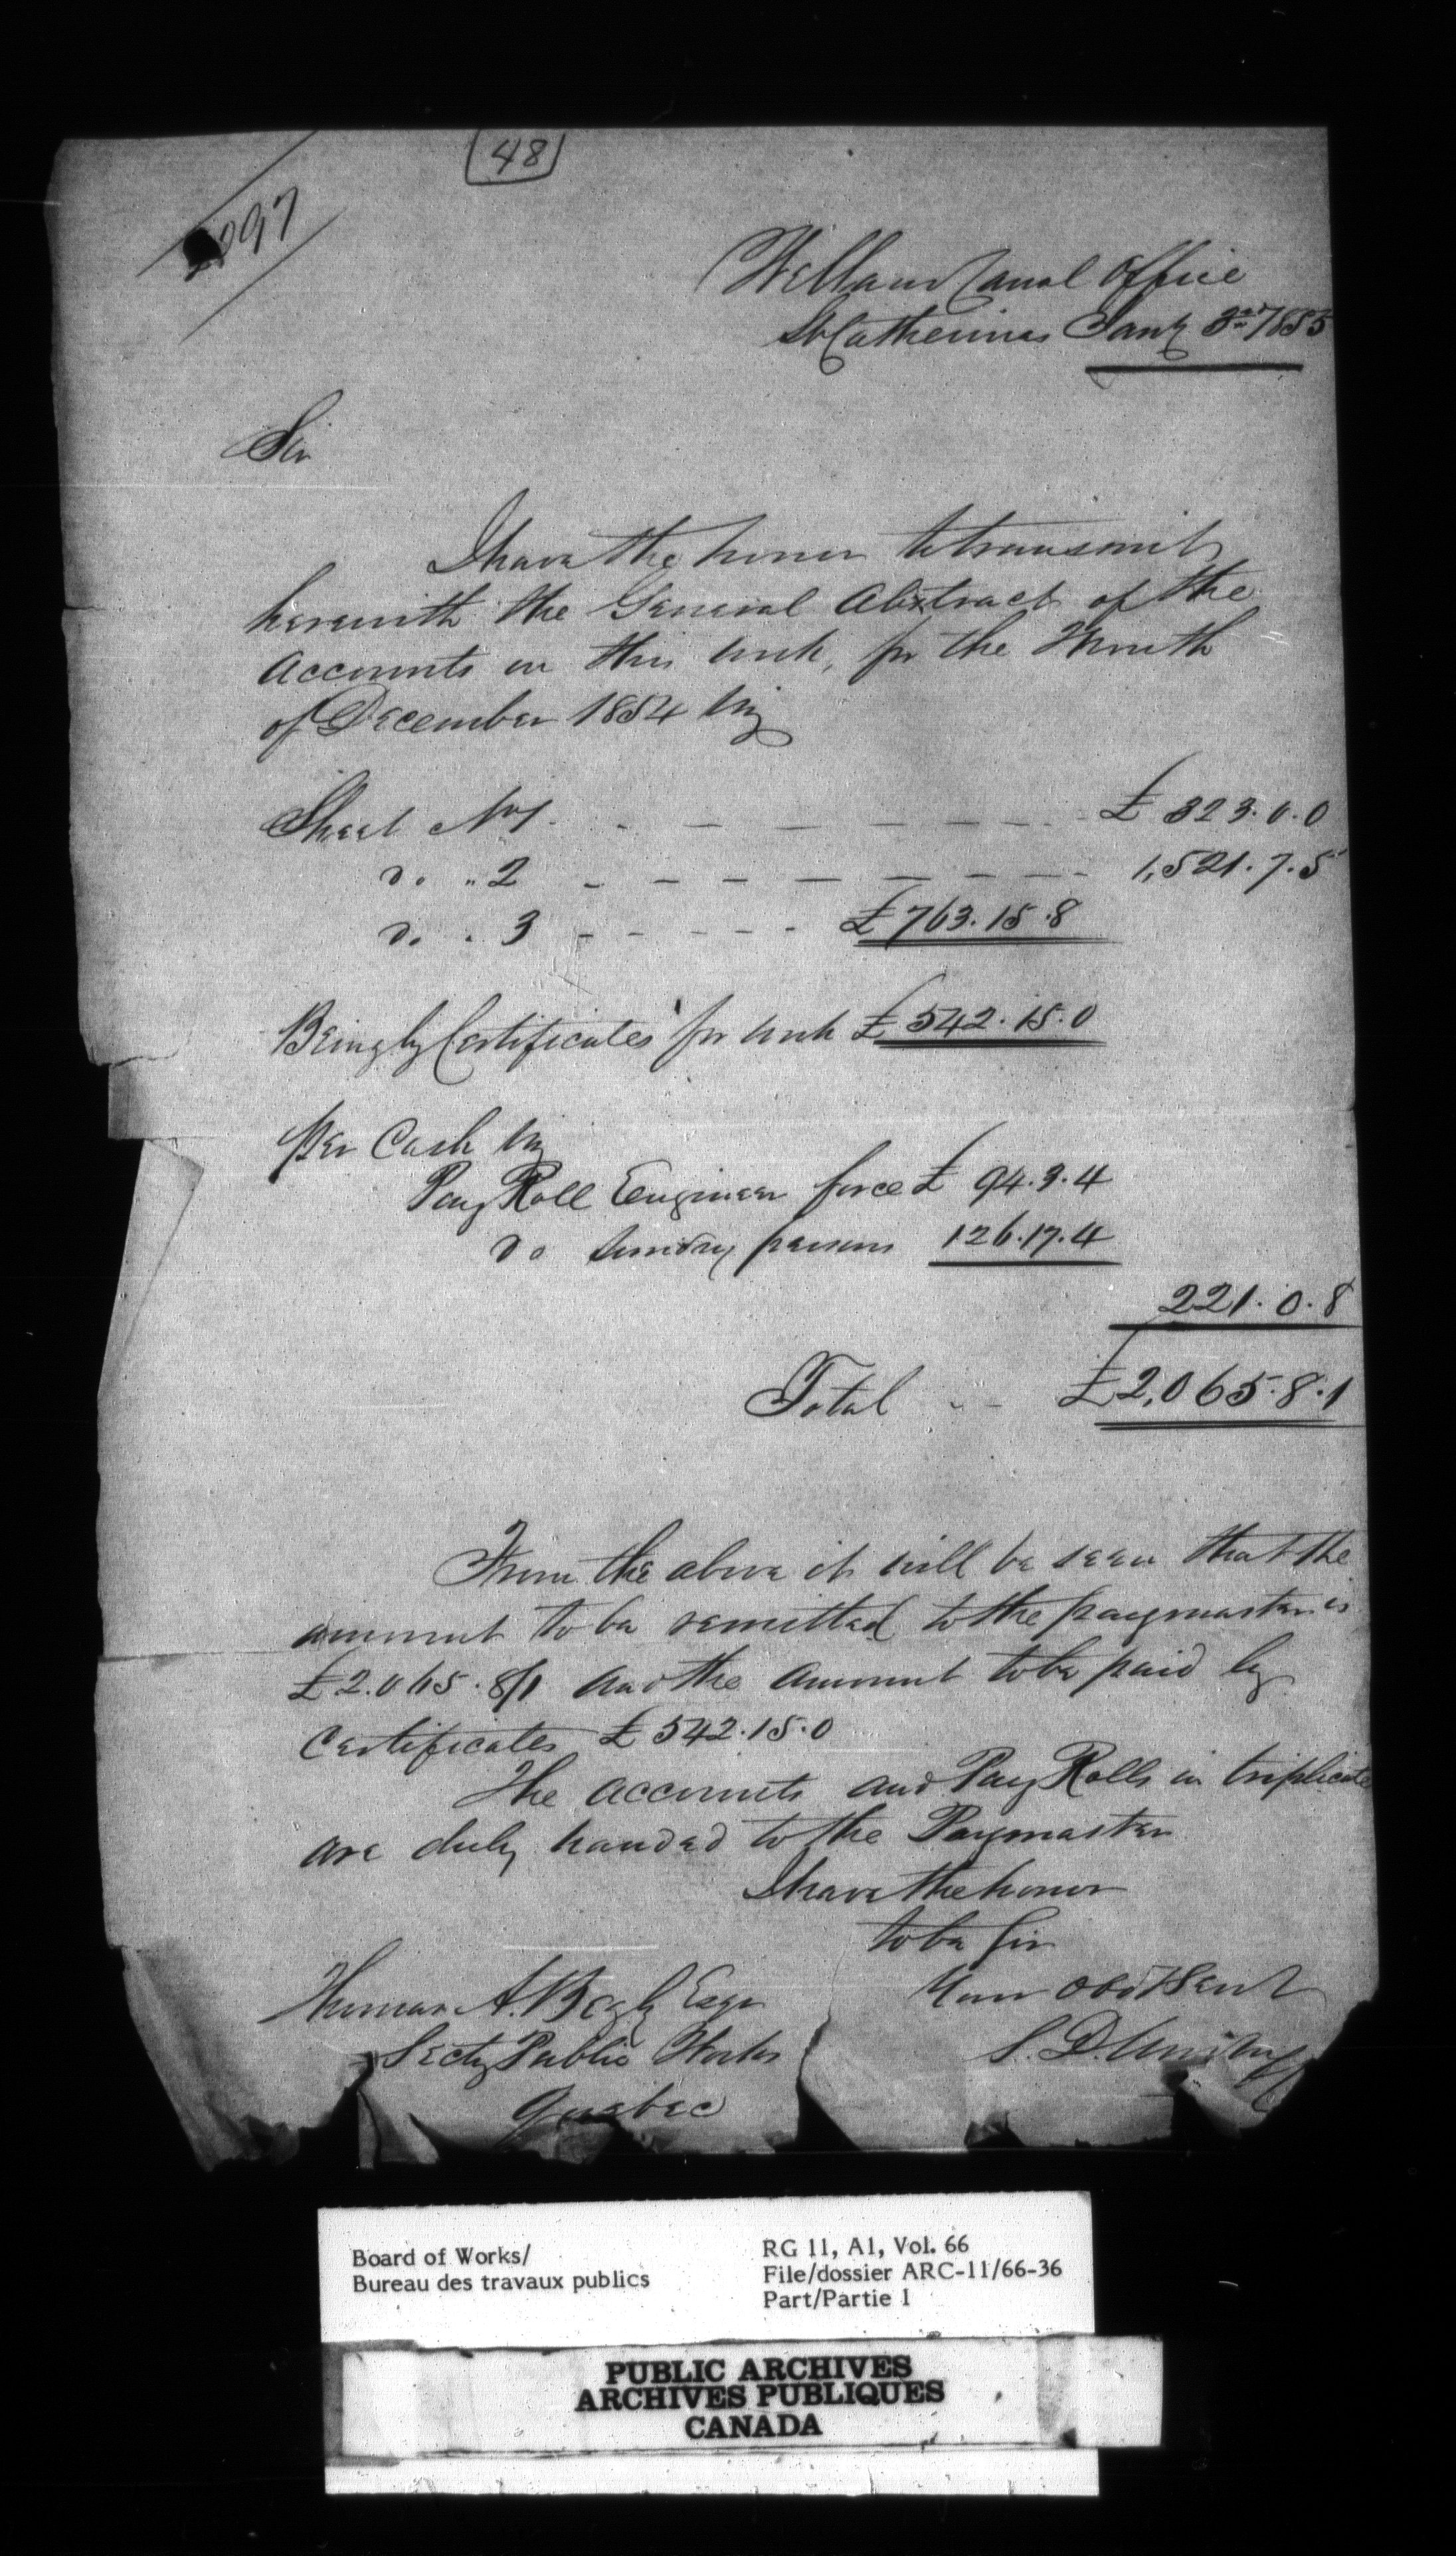 48
Welland Canal Office
St Catherines Jany 3rd 1855
Sir
I have the honor to transmit
herewith the General Abstract of the
Accounts on this work, for the Month
of December 1854 viz
Sheet No 1. £ 323.0.0
Do. " 2 1,521.7.5
Do. " 3 £ 763.15.8
Being by Certificates for work £ 542.15.0
Per Cash viz
Pay Roll Engineer force £ 94.3.4
Do Sundry persons 126.17.4
221.0.8
Total £2,065.8.1
From the above it will be seen that the
amount to be remitted to the paymaster is
£2.065.8/1 and the amount to be paid by
Certificates £542.15.0
The accounts and Pay Rolls in triplicate
are duly handed to the Paymaster
I have the honor
to be Sir
Your Obdt Servt
S. D. Woodruff
Thomas A. Begly Esqr
Secty Public Works
Quebec
Board of Works/
Bureau des travaux publics
RG 11, A1, Vol. 66
File/dossier ARC-11/66-36
Part/Partie 1
PUBLIC ARCHIVES
ARCHIVES PUBLIQUES
CANADA